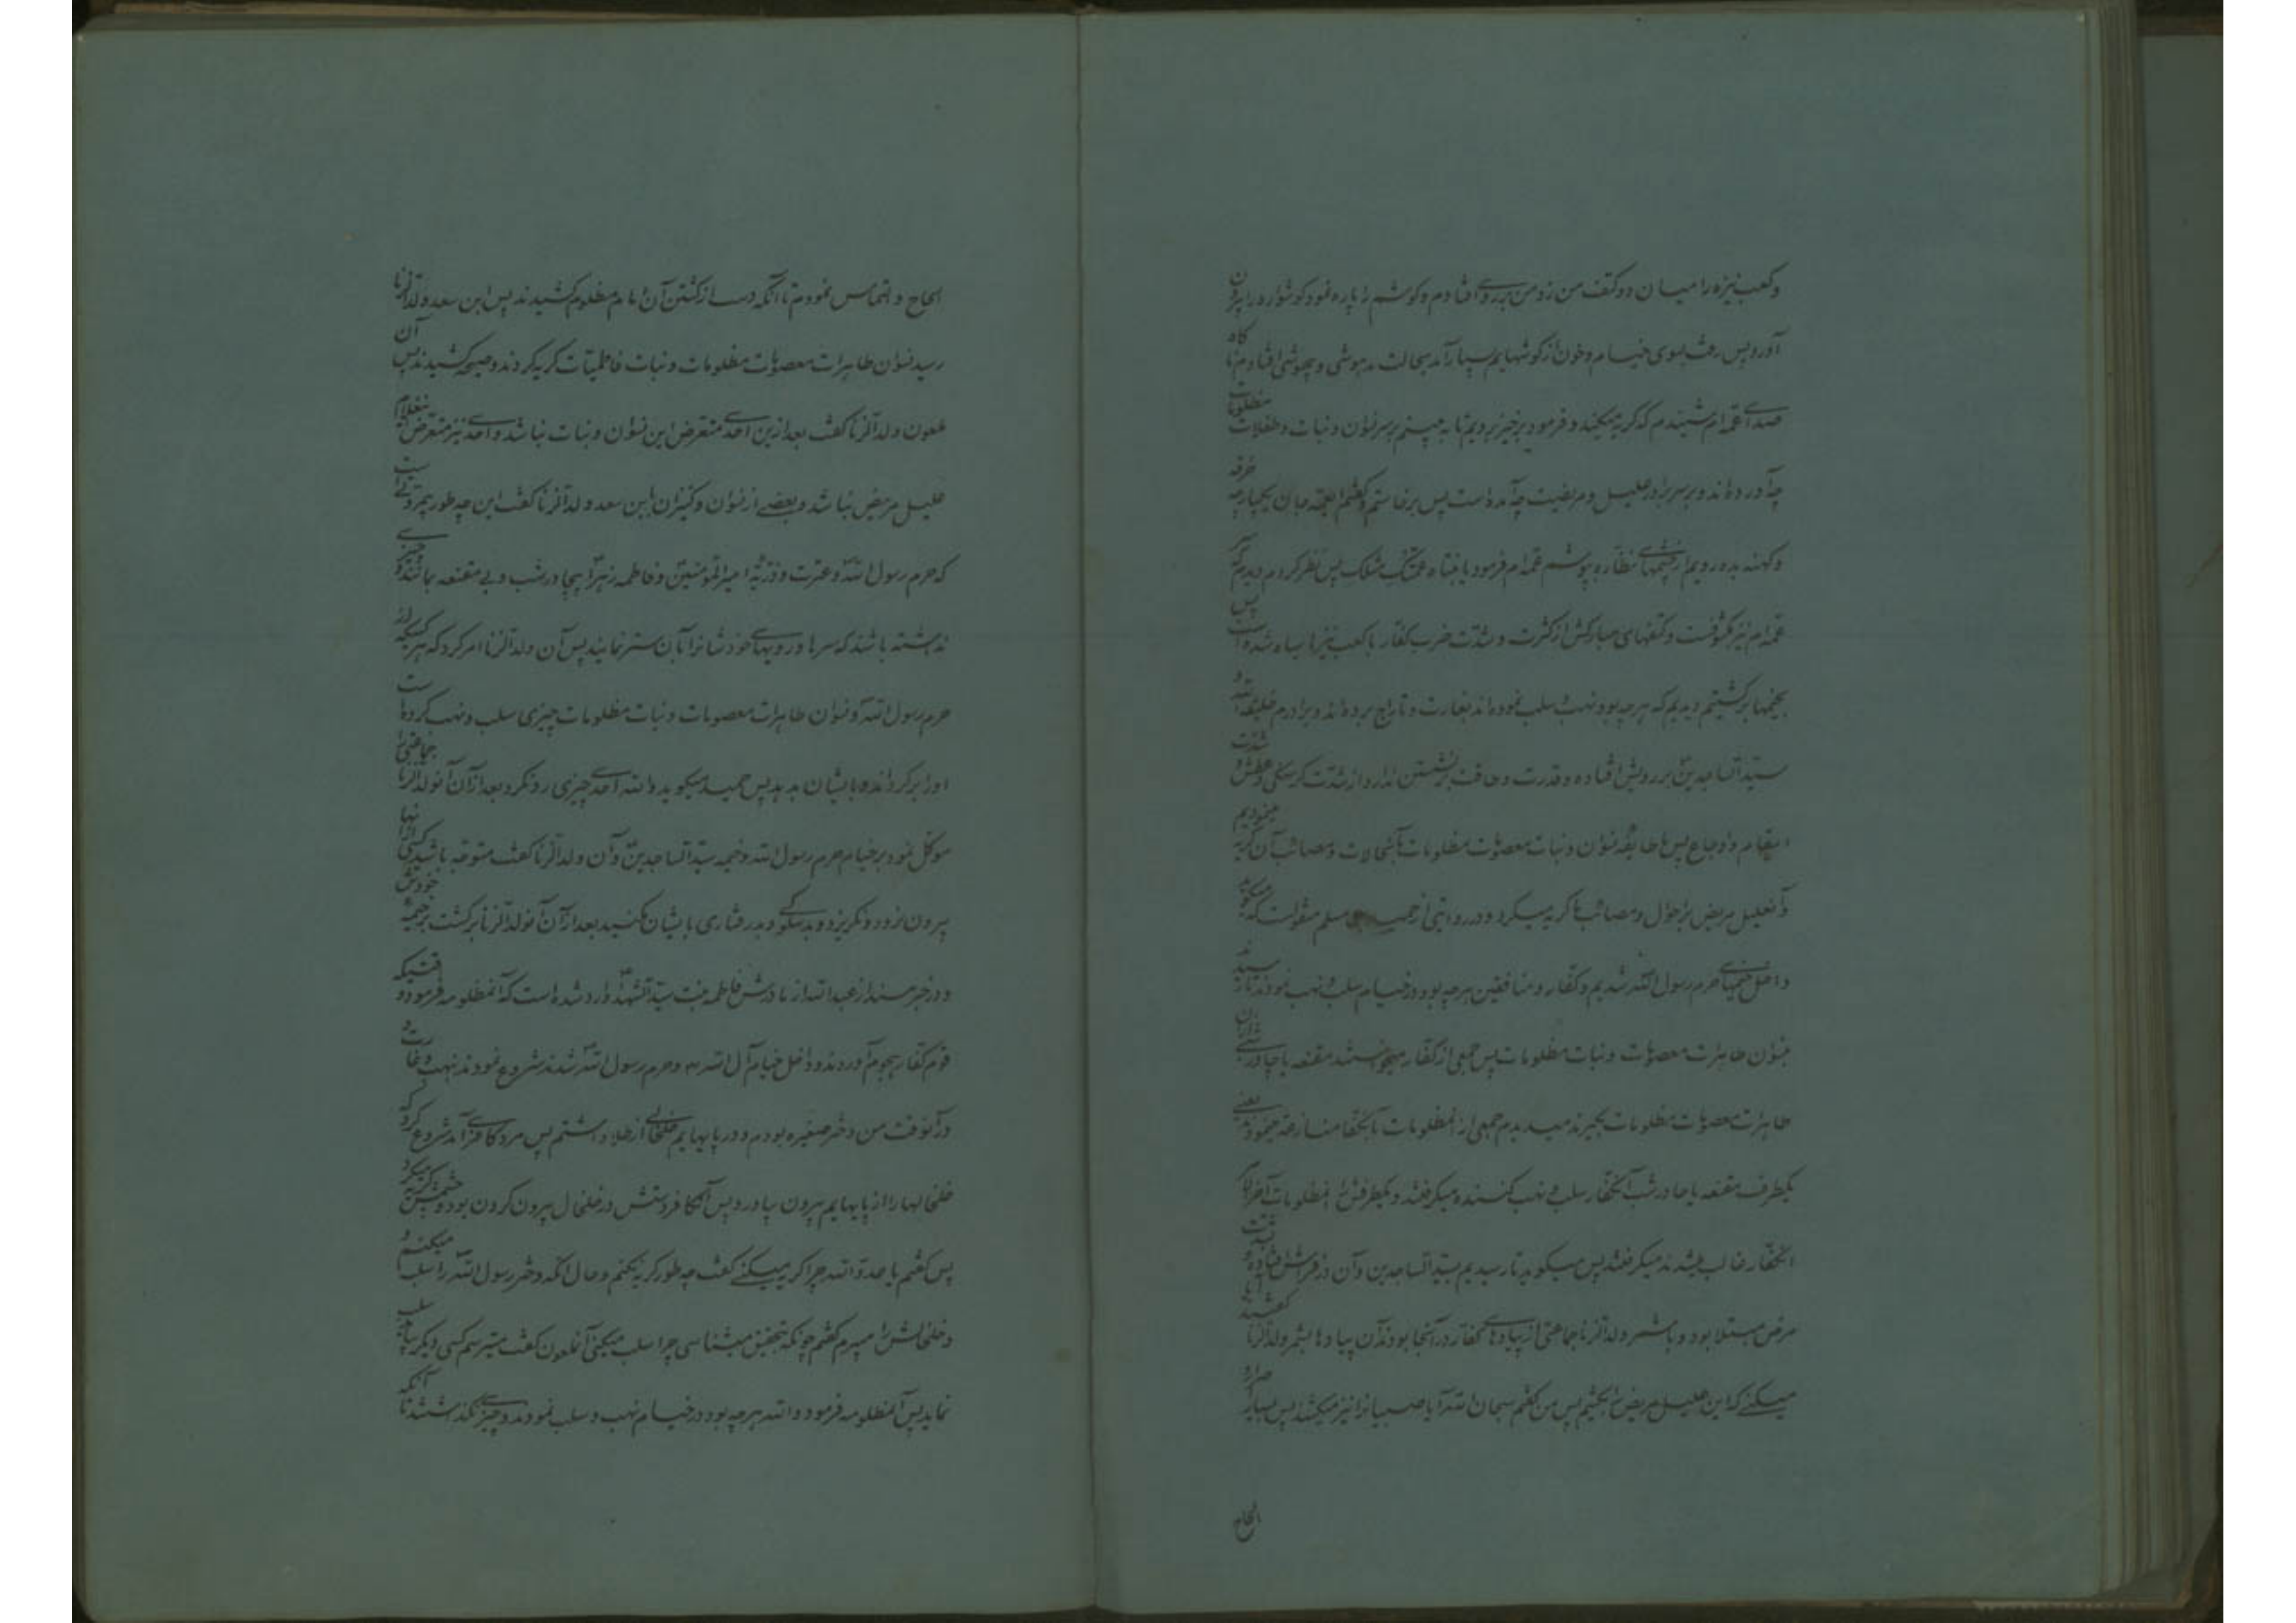 و کعب نیزه را میان دو کتف من زد من بر روی افتادم و گوشم را پاره نمود گوشواره را بیرون
آورد پس رفت بسوی خیام و خون از گوشهایم بسیار آمد بحالت مدهوشی و بیهوشی افتادم تا گاه
صدای عمه‌ام شنیدم که گریه میکند و فرمود برخیز برویم تا به بینیم بر سر نسوان و بنات و طفلات مظلومات
چه آورده‌اند و بر سر برادر علیل و مریضت چه آمده است پس برخاستم و گفتم ایعمه جان یکپارچه خرقه
و کهنه بده رویم از چشمهای نظاره بپوشم عمه‌ام فرمود یا بنتاه عمتک مثلک پس نظر کردم دیدم سر
عمه‌ام نیز مکشوفست و کتفهای مبارکش از کثرت و شدت ضرب کفار با کعب نیزها سیاه شده است پس
بخیمها برگشتیم دیدیم که هر چه بود نهب و سلب نموده‌اند بغارت و تاراج برده‌اند و برادرم خلیفة الله و
سید الساجدین بر رویش افتاده و قدرت و طاقت بر نشستن ندارد از شدت گرسنگی و عطش و شدت
اسقام و اوجاع پس ما طایفه نسوان و بنات معصومات مظلومات بآنحالات و مصائب آن گریه مینمودیم
و آنعلیل مریض بر احوال و مصائب ما گریه میکرد و در روایتی از حمید بن مسلم منقولست که میگوید
داخل خیمهای حرم رسول الله شدیم و کفار و منافقین هر چه بود در خیام سلب و نهب نمودند تا رسیدند
بنسوان طاهرات معصومات و بنات مظلومات پس جمعی از کفار میخواستند مقنعه یا چادر شب از آن
طاهرات معصومات مظلومات بگیرند میدیدم جمعی از مظلومات با آنکفار منازعه مینمودند یعنی
یکطرف مقنعه یا چادر شب آنکفار سلب و نهب کننده میگرفتند و یکطرفش را مظلومات آخر الامر
آنکفار غالب میشدند میگرفتند پس میگوید تا رسیدیم بسید الساجدین و آن در فراش افتاده و بشدت
مرض مبتلا بود و با شمر ولد الزنا جماعتی از پیادهای کفار در آنجا بودند آن پیادها بشمر ولد الزنا گفتند آیا
میکنی که این علیل مریض را بکشیم پس من گفتم سبحان الله آیا صبیانرا نیز میکشند پس بسیار اصرار و
الحاح
الحاح و التماس نمودم تا آنکه دست از کشتن آن امام مظلوم کشیدند پس ابن سعد ولد الزنا
رسید نسوان طاهرات معصومات مظلومات و بنات فاطمیات گریه کردند و صیحه کشیدند پس آن
ملعون ولد الزنا گفت بعد از این احدی متعرض این نسوان و بنات نباشد و احدی نیز متعرض اینغلام
علیل مریض نباشد و بعضی از نسوان و کنیزان بابن سعد ولد الزنا گفت این چه طور بیمروتی است
که حرم رسول الله و عترت و ذریه امیر المؤمنین و فاطمه زهرا بیچادر شب و بی مقنعه بمانند و چیزی
نداشته باشند که سرها و رویهای خودشانرا بآن ستر نمایند پس آن ولد الزنا امر کرد که هر کسیکه از
حرم رسول الله و نسوان طاهرات معصومات و بنات مظلومات چیزی سلب و نهب کرده است
او را برگرداند و بایشان بدهد پس حمید میگوید والله احدی چیزی رد نکرد بعد از آن آنولد الزنا جماعتی را
موکل نمود بر خیام حرم رسول الله و خیمه سید الساجدین و آن ولد الزنا گفت متوجه باشید کسی از آنها
بیرون نرود و نگریزد و بدسلوکی و بدرفتاری بایشان نکنید بعد از آن آنولد الزنا برگشت بر خیمه خودش
و در خبر مسند از عبد الله از مادرش فاطمه بنت سید الشهداء وارد شده است که آنمظلومه فرمود وقتیکه
قوم کفار هجوم آوردند و داخل خیام آل الله و حرم رسول الله شدند شروع نمودند بنهب و غارت و
در آنوقت من دختر صغیره بودم و در پایهایم خلخالی از طلا داشتم پس مرد کافری آمد شروع کرد که
خلخالها را از پایهایم بیرون بیاورد پس آنکافر دستش در خلخال بیرون کردن بود و چشمش گریه میکرد
پس گفتم یا عدو الله چرا گریه میکنی گفت چه طور گریه نکنم و حال آنکه دختر رسول الله را سلب میکنم و
خلخالش را میبرم گفتم چونکه بتحقیق میشناسی چرا سلب میکنی آنملعون گفت میترسم کسی دیگر بیاید سلب
نماید پس آنمظلومه فرمود والله هر چه بود در خیام نهب و سلب نمودند و چیزی نگذاشتند تا آنکه